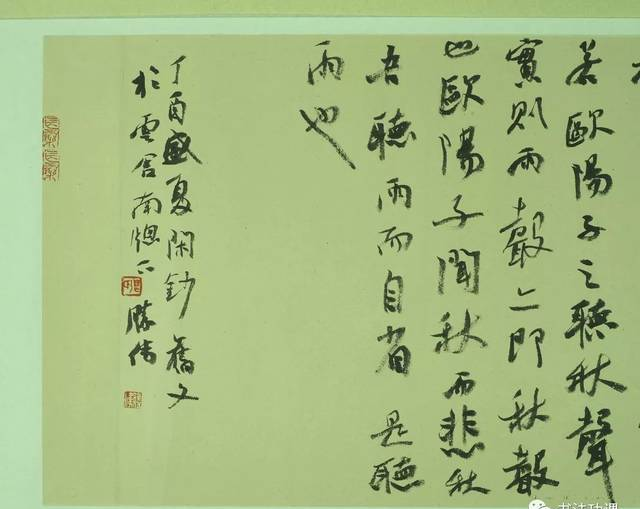 若歐陽子之聽秋聲
實則雨聲亦即秋聲
也歐陽子聞秋而悲秋
吾聽雨而自省是聽
雨也
丁酉盛夏閑鈔舊文
於雲舍南窗下勝偉